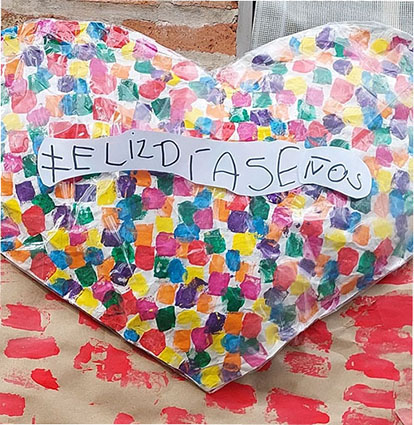 #ELIZDÍASEÑOS